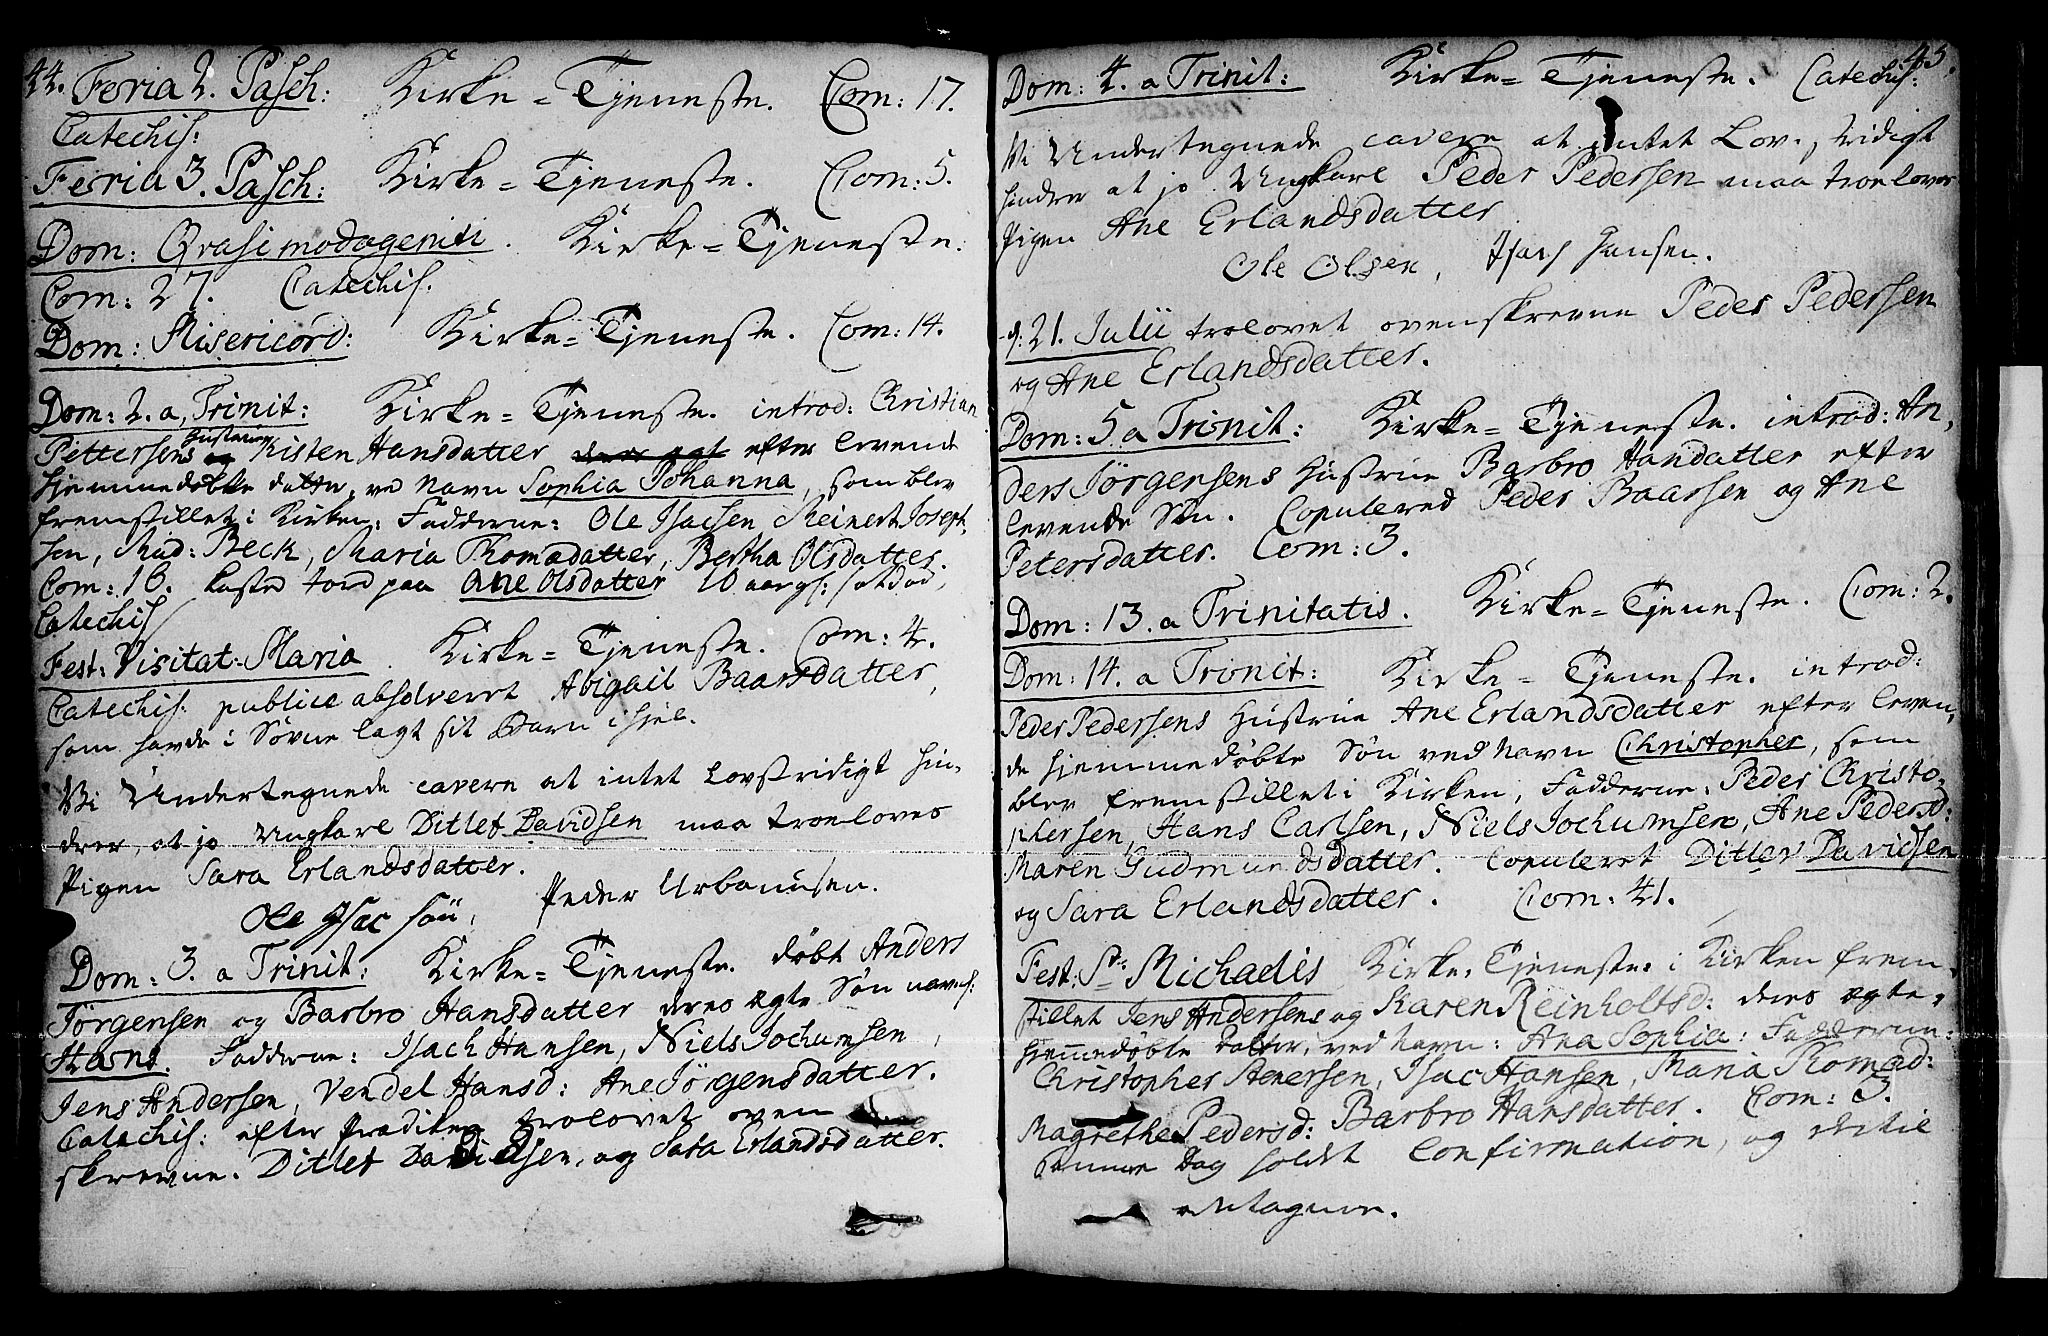 44. Feria 2. Pasch: Kirke=Tjeneste. Com: 17.
Catechis:
Feria 3. Pasch: Kirke=Tjeneste. Com: 5.
Dom: Qvasimodogeniti. Kirke=Tjeneste.
Com: 27. Catechis.
Dom: Misericord: Kirke=Tjeneste. Com: 14.
Dom: 2. a Trinit: Kirke=Tjeneste. introd: Christian
Pettersens Hustrue Kisten Hansdatter efter levende
hiemmedøbte datter, ve Navn Sophia Johanna, som blev
fremstillet i Kirken: Fadderne: Ole Isacsen Meinert Joseph,
sen, Mad: Beck, Maria Thomadatter, Bertha Olsdatter.
Com: 16. kasted Jord paa Ane Olsdatter
Catechis
Fest: Visitat: Maria. Kirke=Tjeneste. Com: 4.
Catechis: publice absolveret Abigail Baarsdatter,
som havde i Søvne lagt sit Barn ihjel.
Vi Undertegnede cavere at intet Lovstridigt hin,
drer, at jo Ungkarl Ditlef Davidsen maa troeloves
Pigen Sara Erlandsdatter.
Ole Isac søn, Peder Urbanusen.
Dom: 3. a Trinit: Kirke=Tjeneste. døbt Anders
Jørgensen og Barbro Hansdatter deres ægte Søn navnl:
Hans. Fadderne: Isach Hansen, Niels Jochumsen,
Jens Andersen, Vendel Hansd: Ane Jørgensdatter.
Catechis: efter Prædiken trolovet oven
skrevne. Ditlef Davidsen, og Sara Erlandsdatter.
45.
Dom: 4. a Trinit: Kirke=Tjeneste. Catechis:
Vi Undertegnede cavere at intet Lov, stridigt
hindrer at jo Ungkarl Peder Pedersen maa troelover
Pigen Ane Erlandsdatter
Ole Olsen, Isach Hansen.
d: 21. Julii trolovet ovenskrevne Peder Pedersen
og Ane Erlandsdatter.
Dom: 5 a Trinit: Kirke=Tjeneste. introd: An,
ders Jörgensens Hustrue Barbro Handatter efter
levende Søn. Copulered Peder Baarsen og Ane
Petersdatter. Com: 3.
Dom: 13. a Trinitatis. Kirke=Tjeneste. Com: 2.
Dom: 14. a Trinit: Kirke=Tjeneste. introd:
Peder Pedersens Hustrue Ane Erlandsdatter efter leven,
de hiemmedøbte Søn ved Navn Christopher, som
blev fremstillet i Kirken, Fadderne: Peder Christo,
phersen, Hans Carlsen, Niels Jochumsen, Ane Pedersd:
Maren Gudmundsdatter. Copuleret Ditlev Davidsen
og Sara Erlandsdatter. Com. 41.
Fest: St: Michaelis Kirke=Tjeneste: i Kirken frem,
stillet Jens Andersens og Karen Reinholtsd: deres ægte,
hiemedøbte Datter, ved Navn: Ana Sophia: Fadderne:
Christopher Stenersen, Isac Hansen, Maria Thomad:
Magrethe Pedersd: Barbro Hansdatter. Com: 3.
Samme Dag holdt Confirmation, og dertil
antagne.